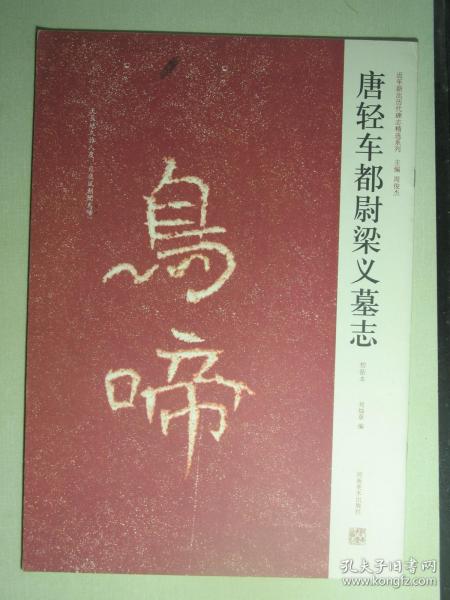 近年新出历代碑志精选系列 主编 周俊杰
唐轻车都尉梁义墓志
初拓本
编
河南美术出版社
鳥啼
孔夫子旧书网
www.kongfz.com